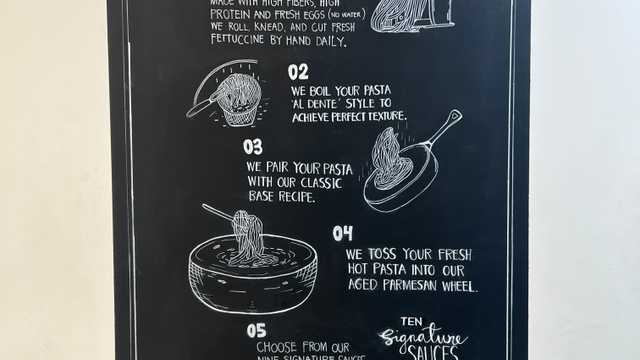 MADE WITH HIGH FIBERS, HIGH
PROTEIN AND FRESH EGGS (NO WATER)
WE ROLL, KNEAD, AND CUT FRESH
FETTUCCINE BY HAND DAILY.
02
WE BOIL YOUR PASTA
'AL DENTE' STYLE TO
ACHIEVE PERFECT TEXTURE.
03
WE PAIR YOUR PASTA
WITH OUR CLASSIC
BASE RECIPE.
04
WE TOSS YOUR FRESH
HOT PASTA INTO OUR
AGED PARMESAN WHEEL.
05
CHOOSE FROM OUR
NINE SIGNATURE SAUCE
TEN
Signature
SAUCES